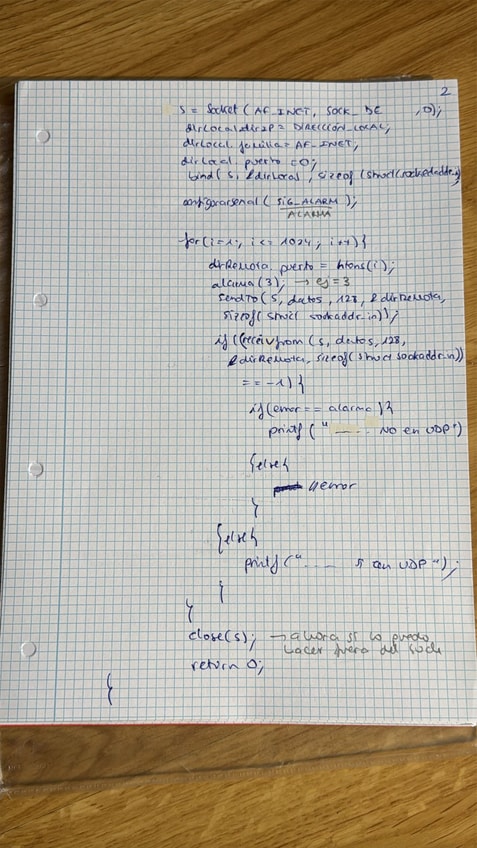 2
s = Socket ( AF_INET, SOCK_DE , 0);
dirLocal.dirIP = DIRECCION_LOCAL;
dirLocal. familia = AF_INET;
dirLocal. puerto = 0;
bind( s, &dirLocal, sizeof (struct sockaddr_in)
configurarsenal ( SIG_ALARM );
ALARMA
for(i=1; i <= 1024; i++){
dirRemota. puerto = htons(i);
alarma(3); → ej = 3
sendto (s, datos, 128, & dirRemota,
sizeof( struct sockaddr_in));
if ((receivfrom (s, datos, 128,
& dirRemota, sizeof(struct sockaddr_in))
== -1) {
if(error == alarma){
printf (" ..... NO en UDP")
}else{
error
}
}else{
printf (" ...... en UDP ");
}
}
close(s); → ahora sí lo puedo
hacer fuera del
return 0;
}